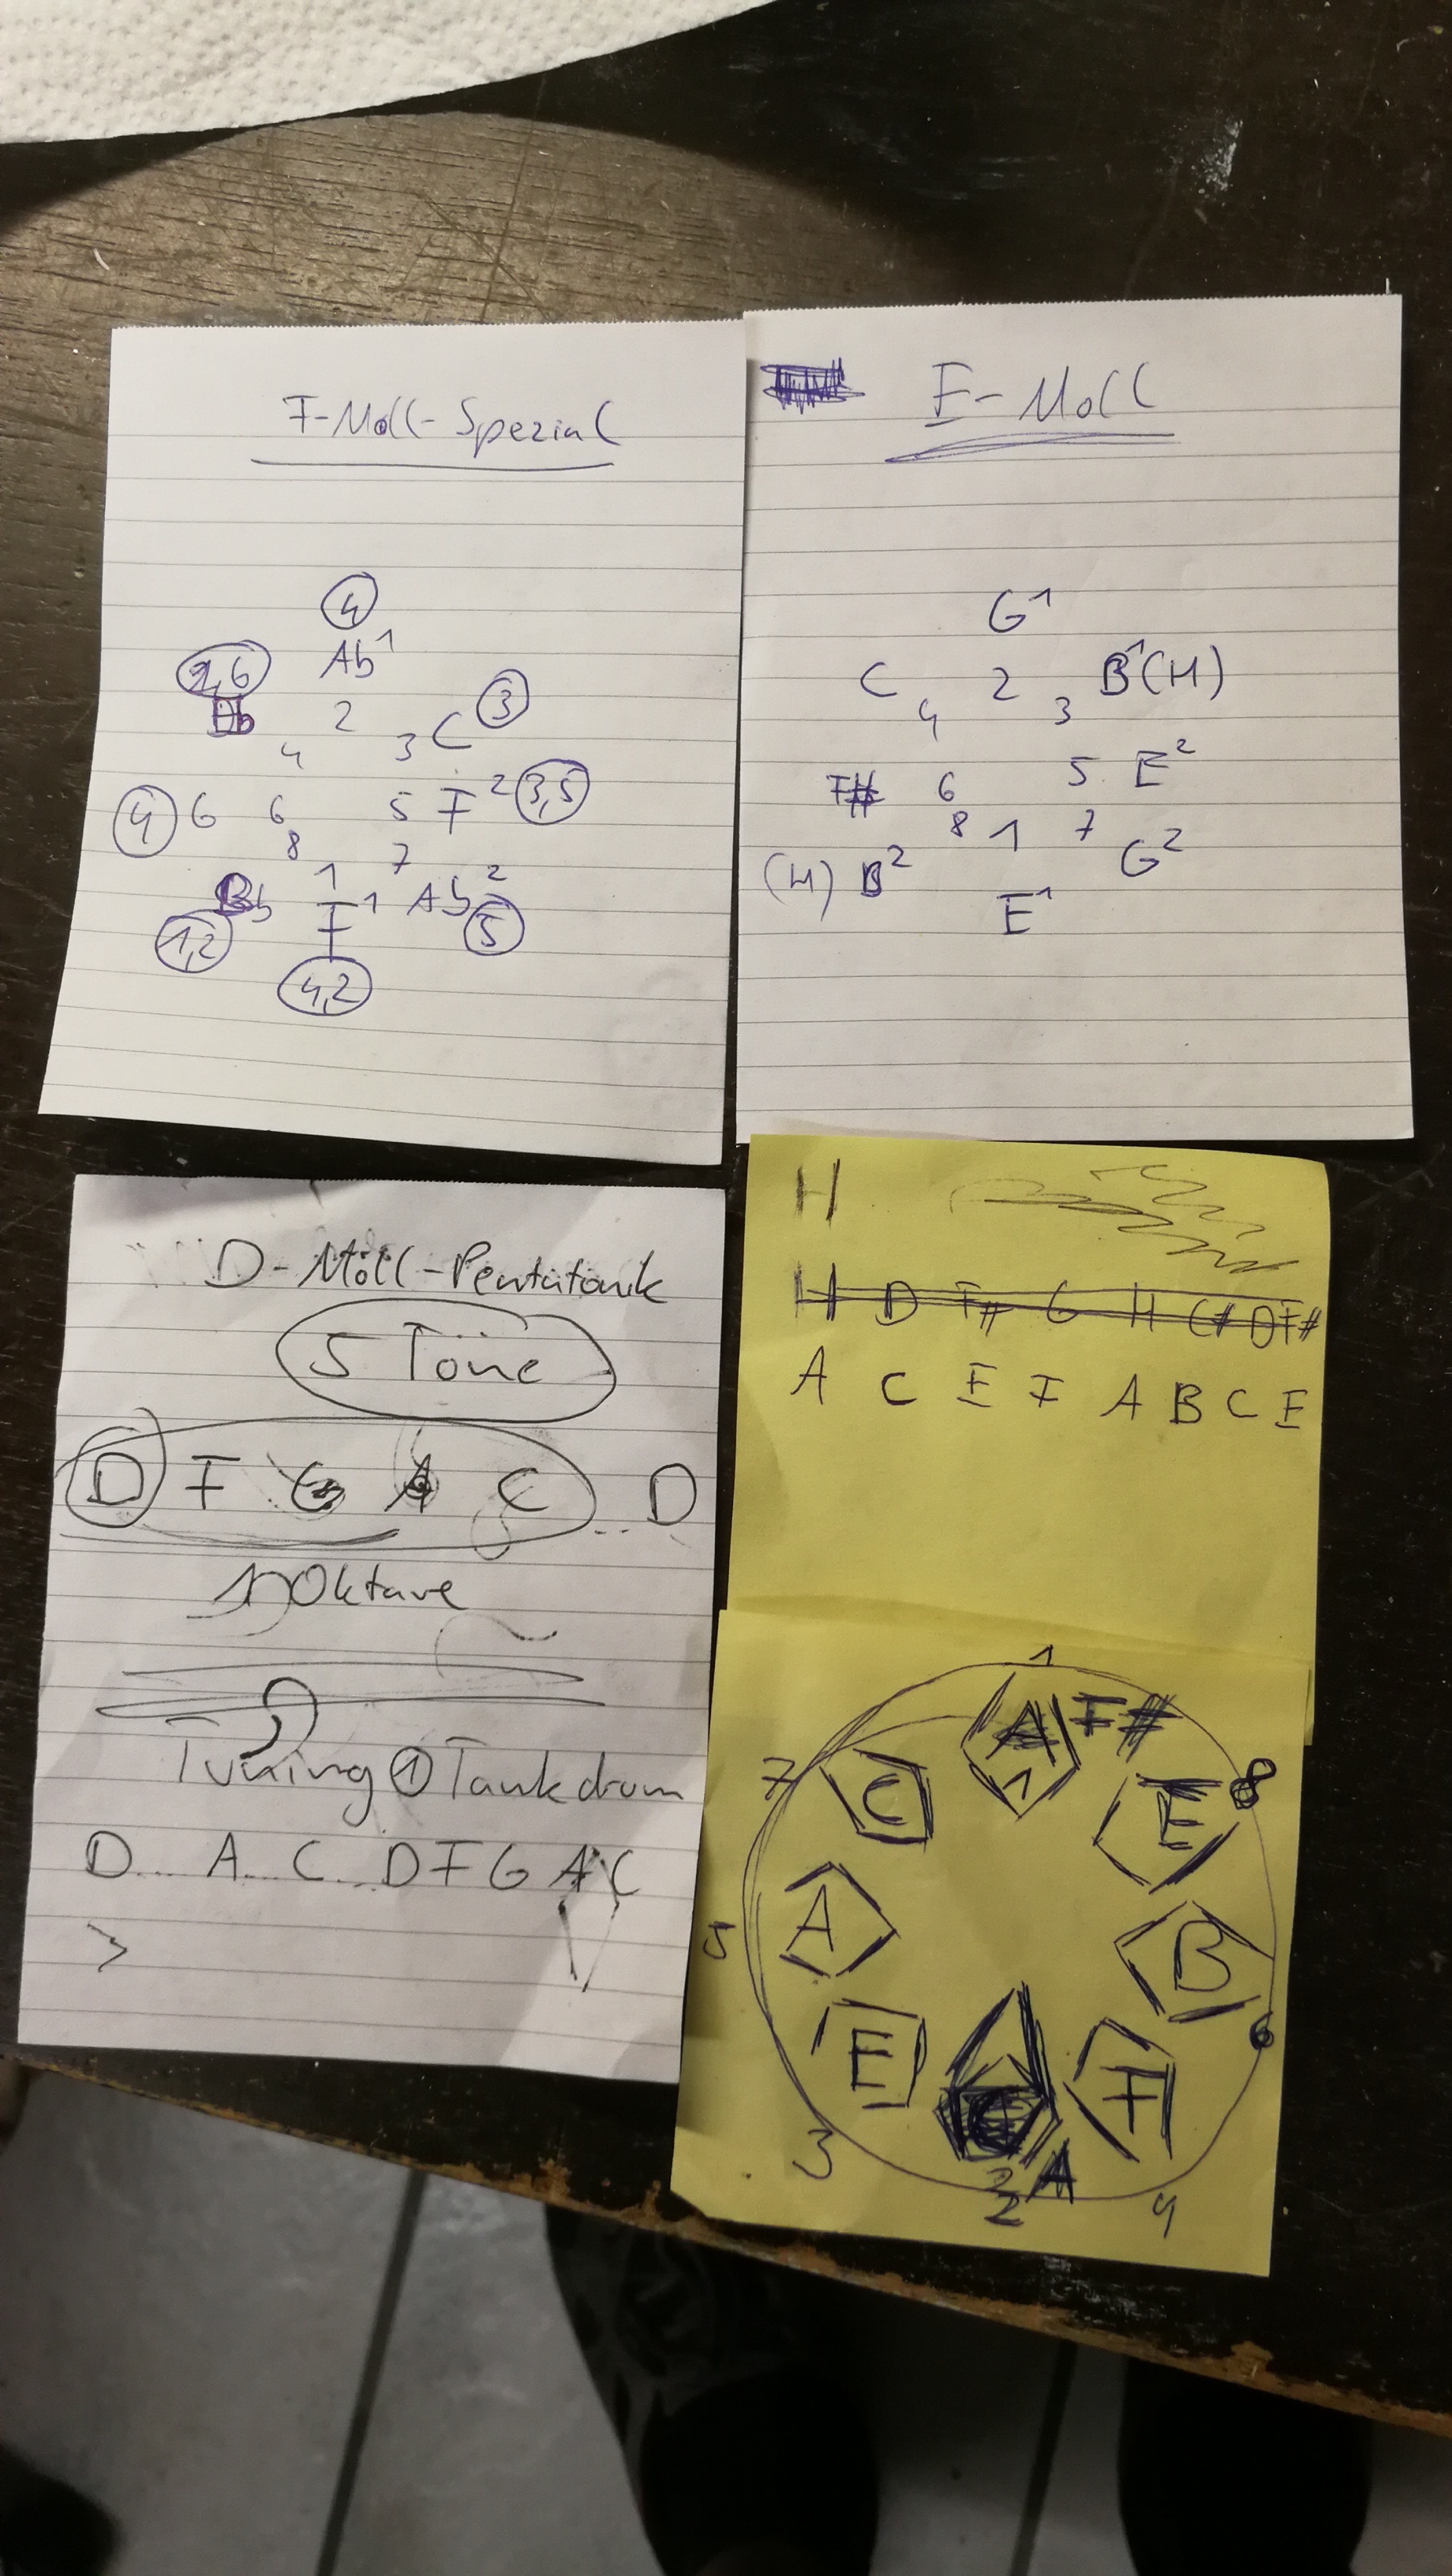 F-Moll-Spezial
4
2,6 Ab¹
Db 2 3
4 3 C
4 6 6 5 F² 3,5
8 7
Bb 1 F¹ Ab² 5
1,2
4,2
E-Moll
G¹
C 4 2 3 B¹(H)
F# 6 5 E²
8 1 7 G²
(H) B² E¹
D-Moll-Pentatonik
5 Töne
D F G A C ... D
1 Oktave
Tuning ① Tankdrum
D... A... C... D F G A C
>
H
H D F# G H C# D F#
A C E F A B C E
1
A F#
1
7 C E 8
5 A B
6
E C F
3 2 A 4